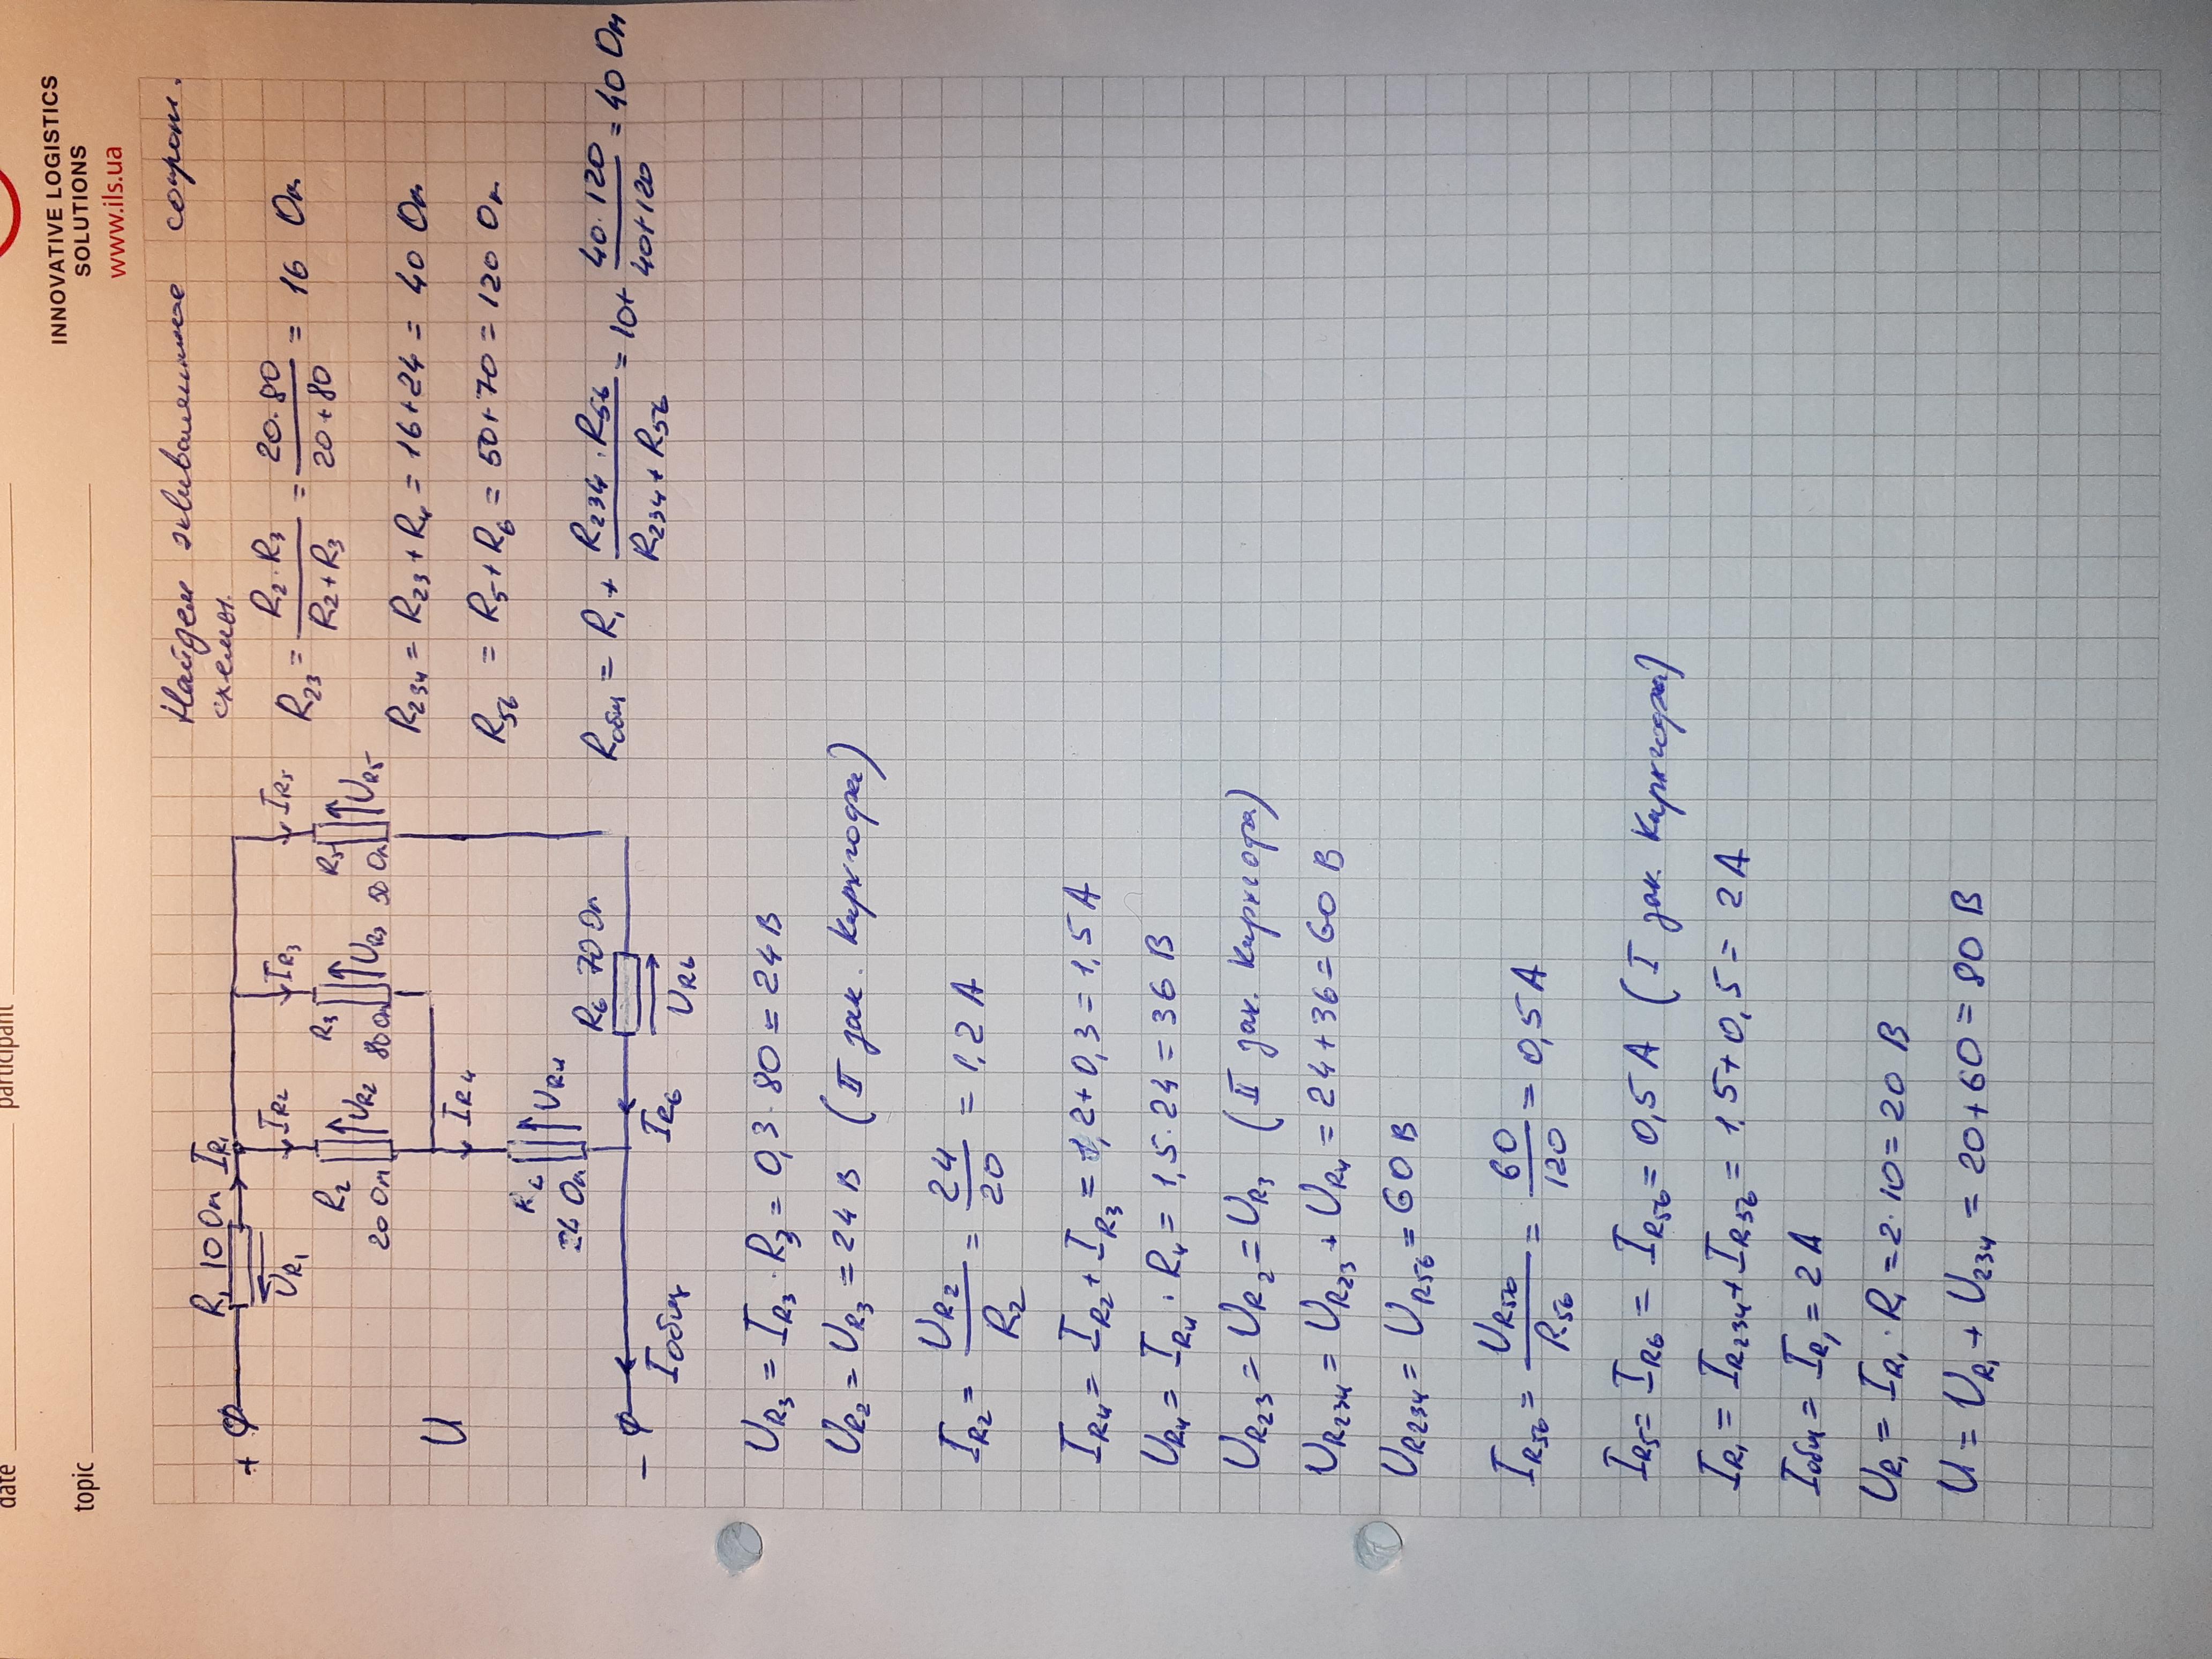 date
participant
topic
INNOVATIVE LOGISTICS
SOLUTIONS
www.ils.ua
+
R₁ 10 Ом I_R₁
U_R₁
I_R₂
I_R₃
I_R₅
R₂
20 Ом
U_R₂
R₃
80 Ом
U_R₃
R₅
50 Ом
U_R₅
U
I_R₄
24 Ом
U_R₄
R₆ 70 Ом
U_R₆
I_R₆
-
Iобщ
Найдем эквивалентное сопрот.
схемы.
R₂₃ = R₂·R₃ / R₂+R₃ = 20·80 / 20+80 = 16 Ом
R₂₃₄ = R₂₃ + R₄ = 16+24 = 40 Ом
R₅₆ = R₅ + R₆ = 50+70 = 120 Ом
Rобщ = R₁ + R₂₃₄·R₅₆ / R₂₃₄+R₅₆ = 10+ 40·120 / 40+120 = 40 Ом
U_R₃ = I_R₃ · R₃ = 0,3·80 = 24 В
U_R₂ = U_R₃ = 24 В (II зак. Киргофа)
I_R₂ = U_R₂ / R₂ = 24 / 20 = 1,2 А
I_R₄ = I_R₂ + I_R₃ = 1,2+0,3 = 1,5 А
U_R₄ = I_R₄ · R₄ = 1,5·24 = 36 В
U_R₂₃ = U_R₂ = U_R₃ (II зак. Киргофа)
U_R₂₃₄ = U_R₂₃ + U_R₄ = 24+36 = 60 В
U_R₂₃₄ = U_R₅₆ = 60 В
I_R₅₆ = U_R₅₆ / R₅₆ = 60 / 120 = 0,5 А
I_R₅ = I_R₆ = I_R₅₆ = 0,5 А (I зак. Киргофа)
I_R₁ = I_R₂₃₄ + I_R₅₆ = 1,5+0,5 = 2 А
Iобщ = I_R₁ = 2 А
U_R₁ = I_R₁ · R₁ = 2·10 = 20 В
U = U_R₁ + U₂₃₄ = 20+60 = 80 В